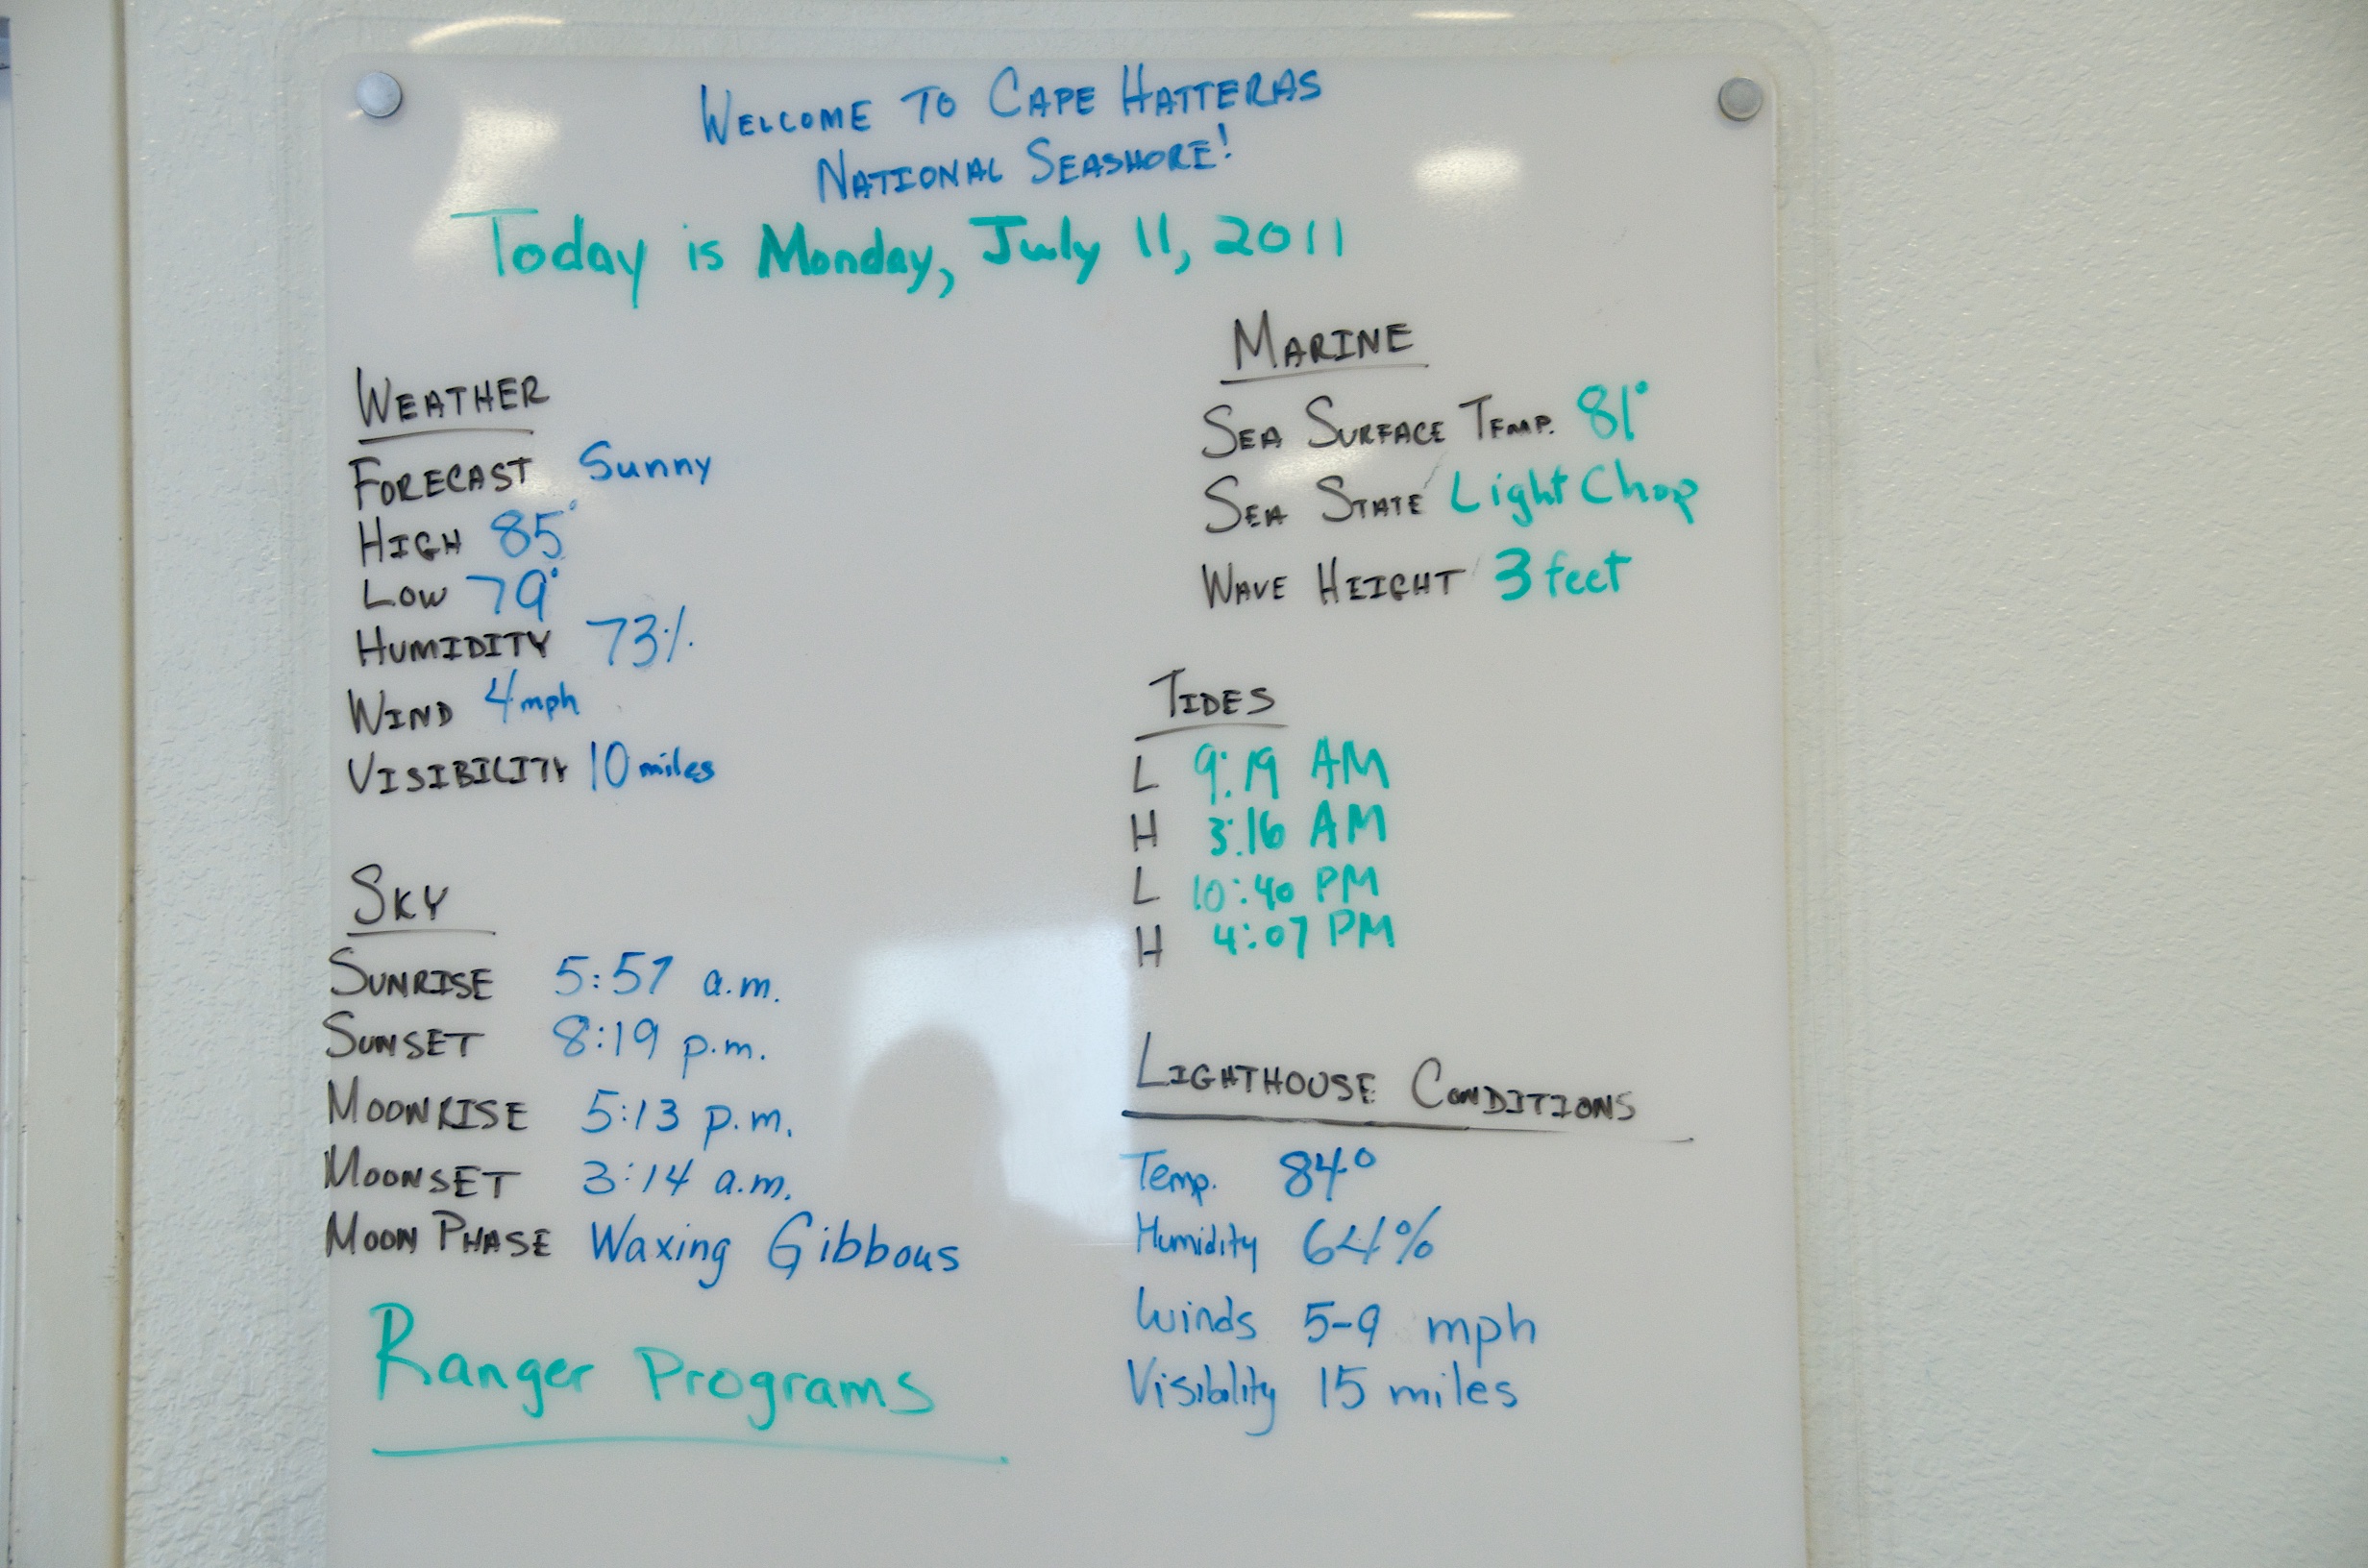 WELCOME TO CAPE HATTERAS
NATIONAL SEASHORE!
Today is Monday, July 11, 2011
WEATHER
FORECAST Sunny
HIGH 85°
LOW 79°
HUMIDITY 73%
WIND 4mph
VISIBILITY 10 miles
SKY
SUNRISE 5:57 a.m.
SUNSET 8:19 p.m.
MOONRISE 5:13 p.m.
MOONSET 3:14 a.m.
MOON PHASE Waxing Gibbous
Ranger Programs
MARINE
SEA SURFACE TEMP. 81°
SEA STATE Light Chop
WAVE HEIGHT 3 feet
TIDES
L 9:19 AM
H 3:16 AM
L 10:40 PM
H 4:07 PM
LIGHTHOUSE CONDITIONS
Temp. 84°
Humidity 64%
Winds 5-9 mph
Visibility 15 miles